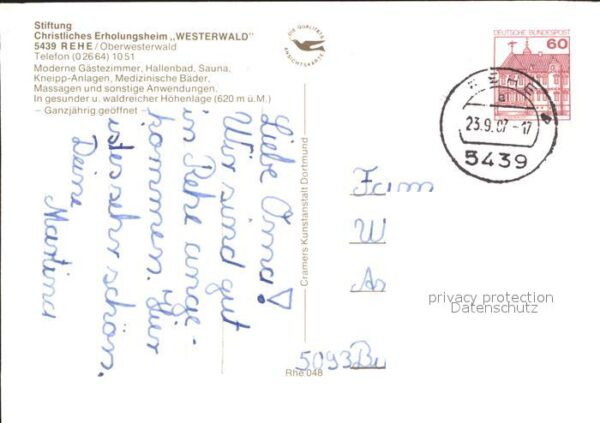 Stiftung
Christliches Erholungsheim „WESTERWALD"
5439 REHE/Oberwesterwald
Telefon (02664) 1051
Moderne Gästezimmer, Hallenbad, Sauna,
Kneipp-Anlagen, Medizinische Bäder,
Massagen und sonstige Anwendungen.
In gesunder u. waldreicher Höhenlage (620 m ü.M.)
– Ganzjährig geöffnet –
Liebe Oma!
Wir sind gut
in Rehe ange-
kommen. Hier
ist es sehr schön.
Deine
Martina
DIE QUALITÄTS
ANSICHTSKARTE
Cramers Kunstanstalt Dortmund
Rhe 048
DEUTSCHE BUNDESPOST
60
REHE
a
23.9.87-17
5439
W
An
5093 Bu
privacy protection
Datenschutz